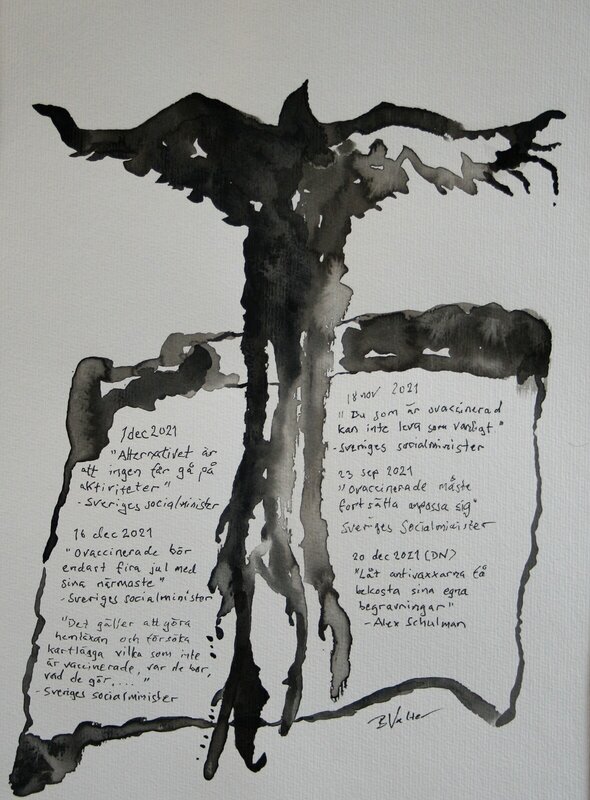 1 dec 2021
"Alternativet är
att ingen får gå på
aktiviteter"
- Sveriges socialminister
16 dec 2021
"Ovaccinerade bör
endast fira jul med
sina närmaste"
- Sveriges socialminister
"Det gäller att göra
hemläxan och försöka
kartlägga vilka som inte
är vaccinerade, var de bor,
vad de gör, ...."
- Sveriges socialminister
18 nov 2021
"Du som är ovaccinerad
kan inte leva som vanligt"
- Sveriges socialminister
23 sep 2021
"Ovaccinerade måste
fortsätta anpassa sig"
Sveriges Socialminister
20 dec 2021 (DN)
"Låt antivaxxarna få
bekosta sina egna
begravningar"
- Alex Schulman